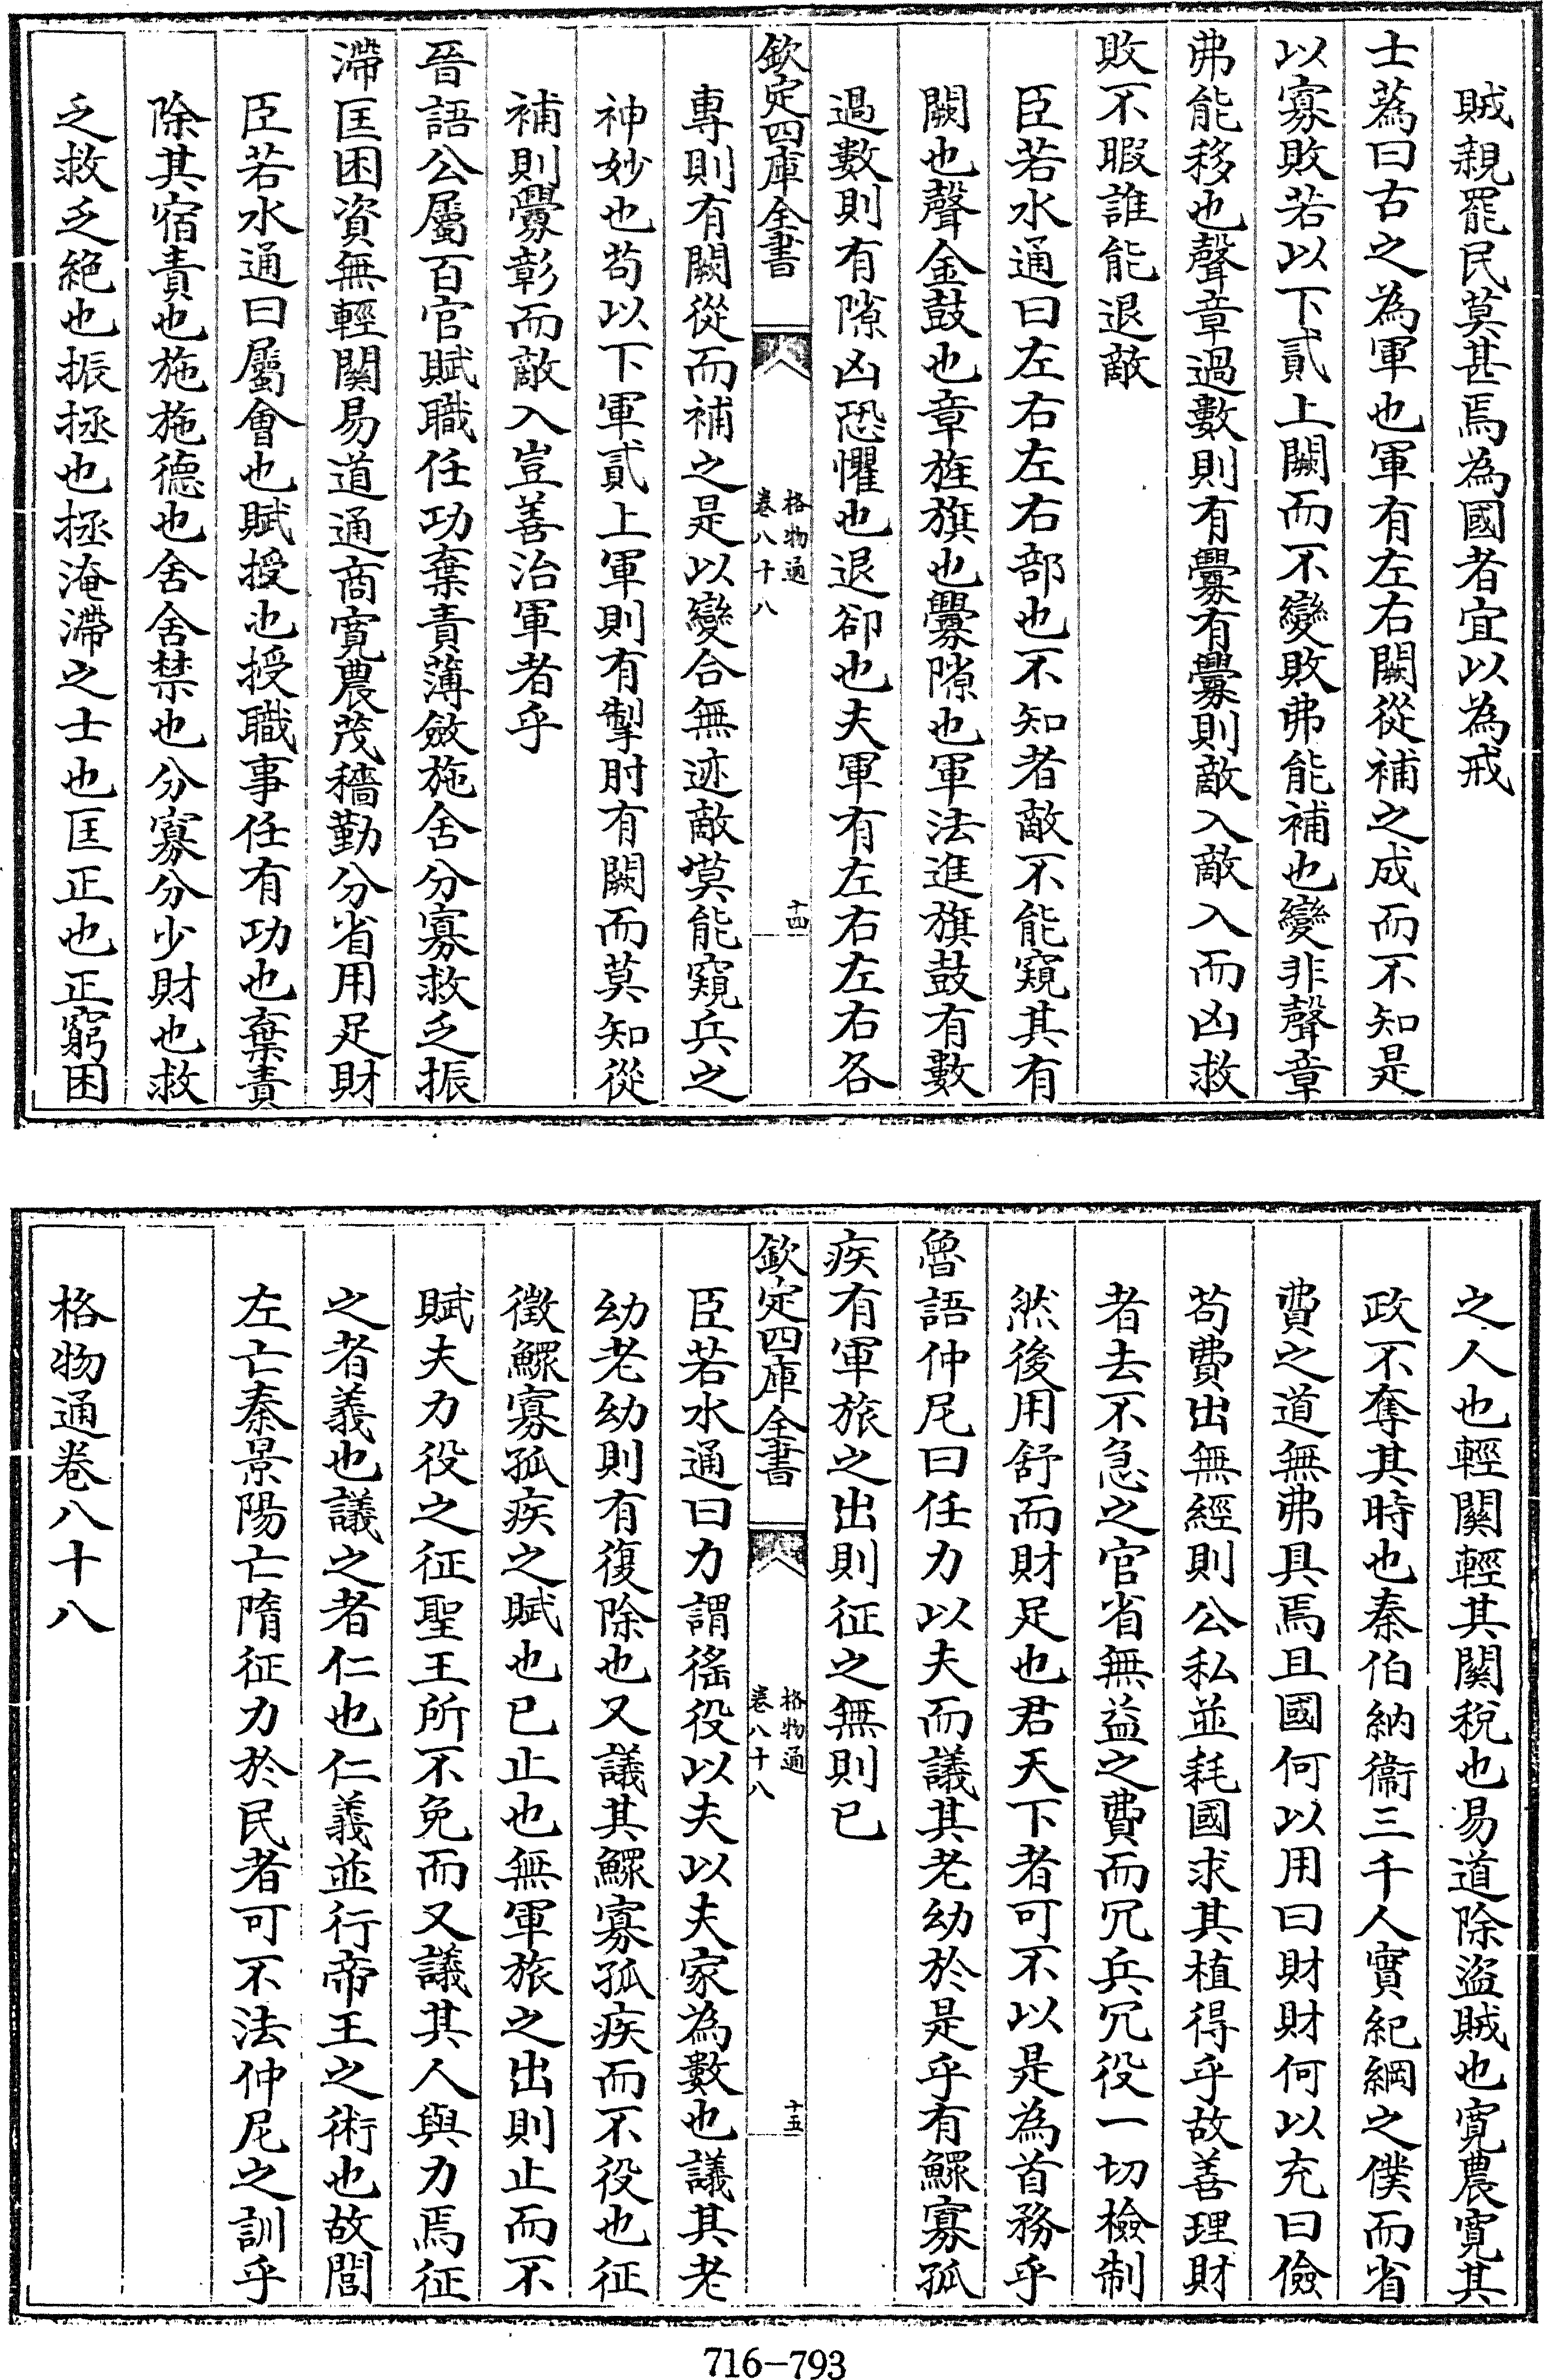 賊親罷民莫甚焉為國者宜以為戒
士蒍曰古之為軍也軍有左右闕從補之成而不知是
以寡敗若以下貳上闕而不變敗弗能補也變非聲章
弗能移也聲章過數則有釁有釁則敵入敵入而凶救
敗不暇誰能退敵
臣若水通曰左右左右部也不知者敵不能窺其有
闕也聲金鼓也章旌旗也釁隙也軍法進旗鼓有數
過數則有隙凶恐懼也退卻也夫軍有左右左右各
欽定四庫全書
格物通
卷八十八
十四
專則有闕從而補之是以變合無迹敵莫能窺兵之
神妙也苟以下軍貳上軍則有掣肘有闕而莫知從
補則釁彰而敵入豈善治軍者乎
晉語公屬百官賦職任功棄責薄斂施舍分寡救乏振
滯匡困資無輕關易道通商寬農茂穡勤分省用足財
臣若水通曰屬會也賦授也授職事任有功也棄責
除其宿責也施施德也舍舍禁也分寡分少財也救
乏救乏絕也振拯也拯淹滯之士也匡正也正窮困
之人也輕關輕其關稅也易道除盜賊也寬農寬其
政不奪其時也秦伯納衞三千人實紀綱之僕而省
費之道無弗具焉且國何以用曰財財何以充曰儉
苟費出無經則公私並耗國求其植得乎故善理財
者去不急之官省無益之費而冗兵冗役一切檢制
然後用舒而財足也君天下者可不以是為首務乎
魯語仲尼曰任力以夫而議其老幼於是乎有鰥寡孤
疾有軍旅之出則征之無則已
欽定四庫全書
格物通
卷八十八
十五
臣若水通曰力謂徭役以夫以夫家為數也議其老
幼老幼則有復除也又議其鰥寡孤疾而不役也征
徵鰥寡孤疾之賦也已止也無軍旅之出則止而不
賦夫力役之征聖王所不免而又議其人與力焉征
之者義也議之者仁也仁義並行帝王之術也故閭
左亡秦景陽亡隋征力於民者可不法仲尼之訓乎
格物通卷八十八
716-793